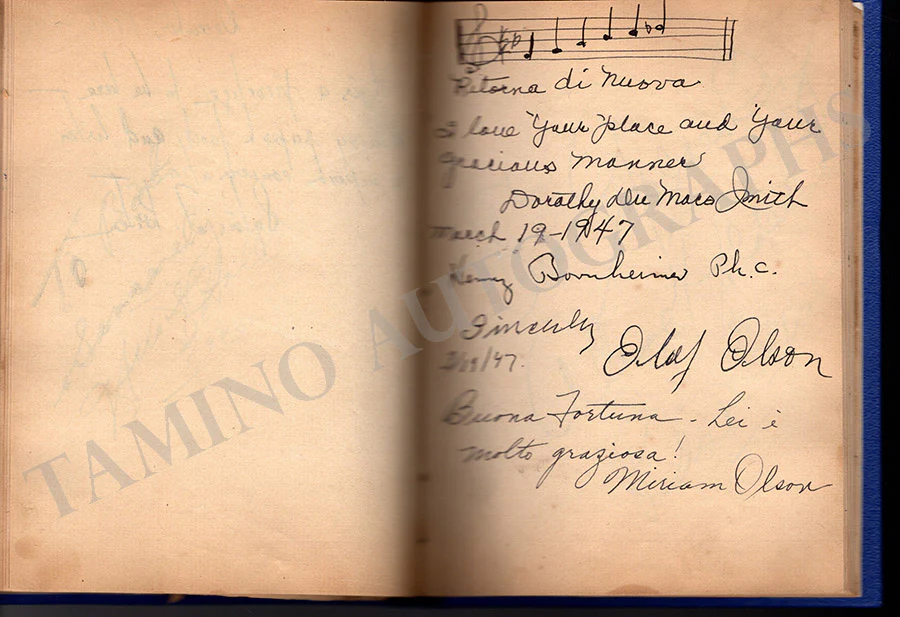 Ritorna di Nuova
I love Your place and Your
gracious manner
Dorothy Du Macs Smith
March 19-1947
Henry Bornheimer Ph.C.
Sincerely
Olaf Olson
/47.
Buona Fortuna - Lei è
molto graziosa!
Miriam Olson
TAMINO AUTOGRAPHS